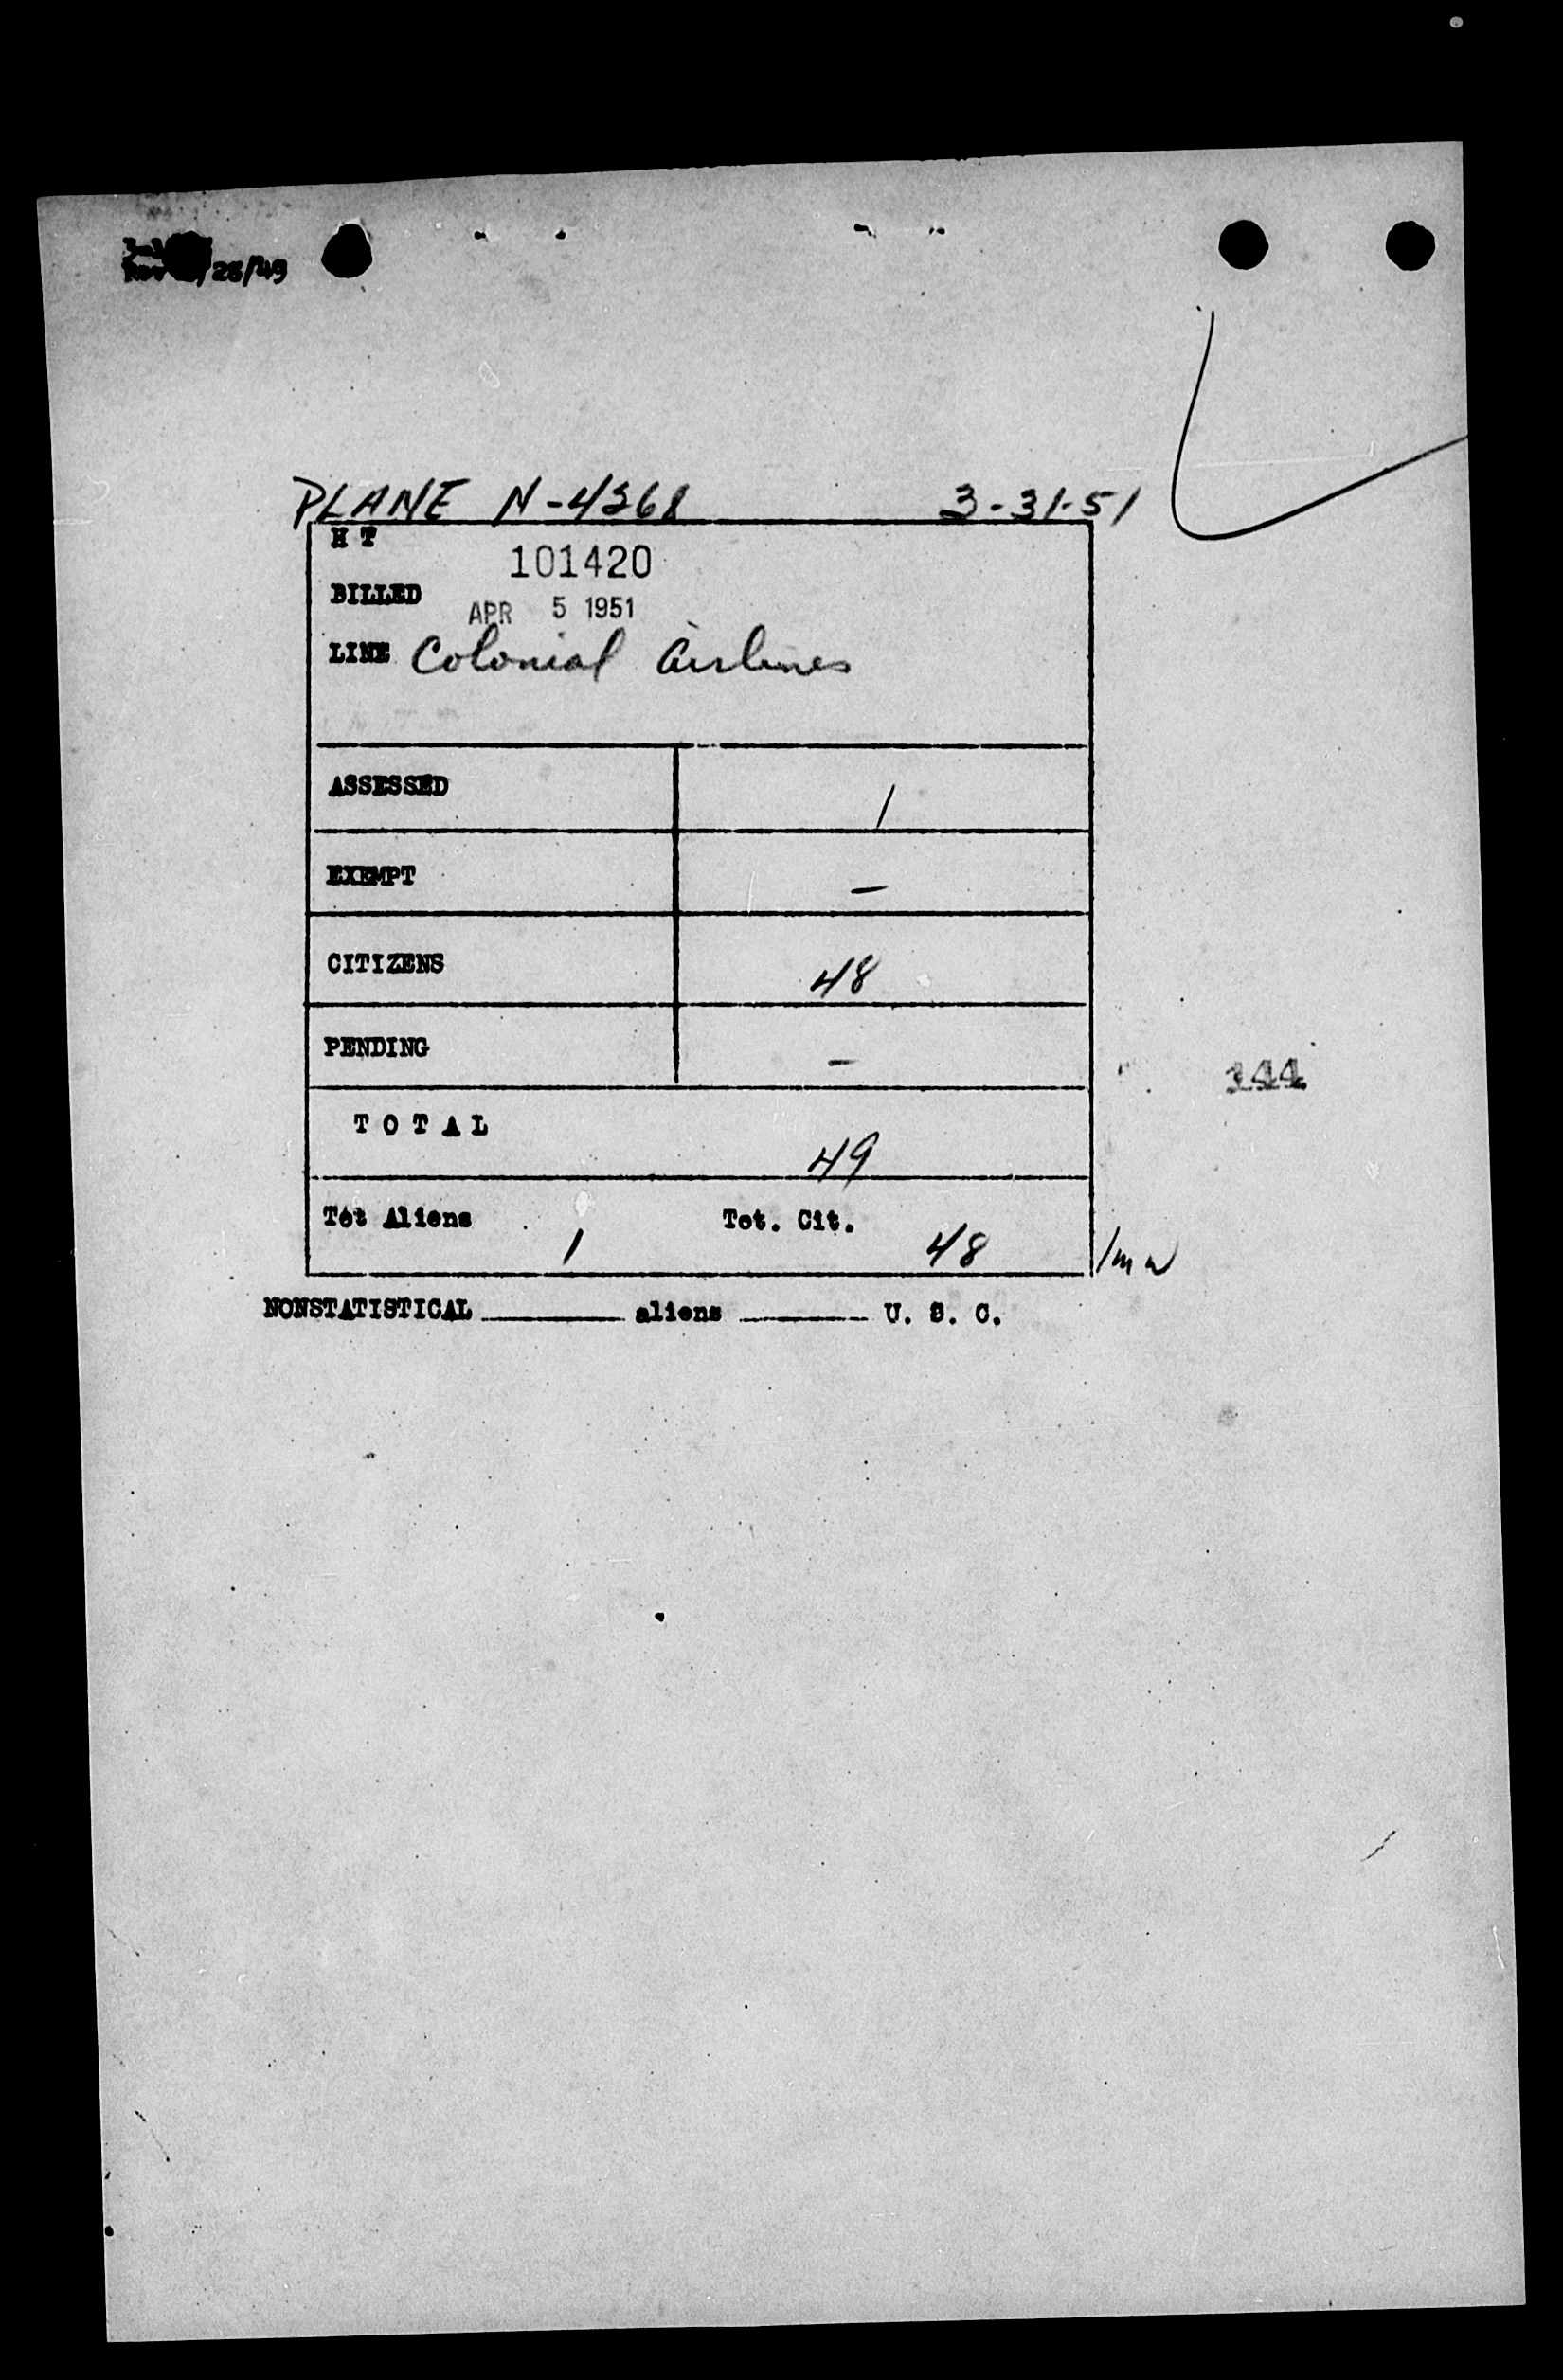 28/49
PLANE N-4268 3-31-51
H T
101420
BILLED
APR 5 1951
LINE Colonial Airlines
ASSESSED 1
EXEMPT –
CITIZENS 48
PENDING –
144
T O T A L 49
Tot Aliens 1 Tot. Cit. 48 /mw
NONSTATISTICAL ________ aliens ________ U. S. C.